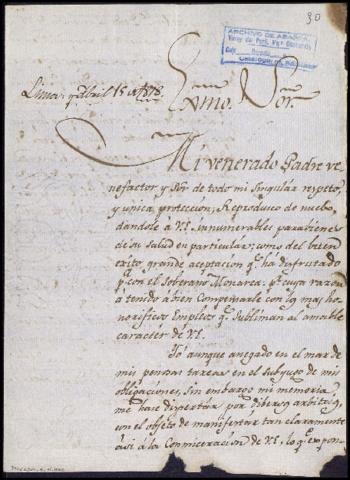 30
ARCHIVO DE ABASCAL
Lima, y Abril 15 de 1818.
Exmo. Sor.
Mi venerado Padre ve
nefactor y Sor. de todo mi singular respeto,
y unica protección; Reproduzco de nuebo,
dandole á V.E. innumerables parabienes
de su salud en particular; como del bien
exito, grande aceptacion qe. há disfrutado
pa. con el Soberano Monarca. pr. cuya razon
á tenido á bien Compensarle con los mas ho
norificos Empleos qe. Subliman al amable
carácter de V.E.
Yó aunque anegado en el mar de
mis penosas tareas en el subyugo de mis
obligaciones, sin embargo mi memoria
me hace dispertár por diversos arbitrios,
con el objeto de manifestar tan claramente
asi á la Conmiceracion de V.E. lo qe. expon